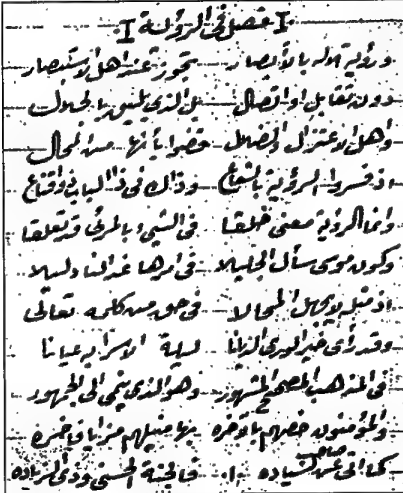 فصل في الرؤية
ورؤية الاله بالأبصار تجوز عند اهل الاستبصار
دون تقابل او اتصال بل الذي يليق بالجلال
واهل الاعتزال والضلال قضوا بأنها من المحال
اذ فسروا الرؤية بالشعاع وذاك في ذا الباب ذو اقناع
وانما الرؤية معنى خلقا في الشيء بالمرئي قد تعلقا
وكون موسى سأل الجليلا في امرها غدا لنا دليلا
اذ مثله لا يجهل المحالا في حق من كلمه تعالى
وقد رأى خير الورى الديانا ليلة الاسراء به عيانا
في المذهب المصحح المشهور وهو الذي ينمى الى الجمهور
والمؤمنون خصهم بالاخره بها منيلهم مزايا فاخره
كما اتى عن صاحب السياده في الجنة الحسنى وذي الزياده